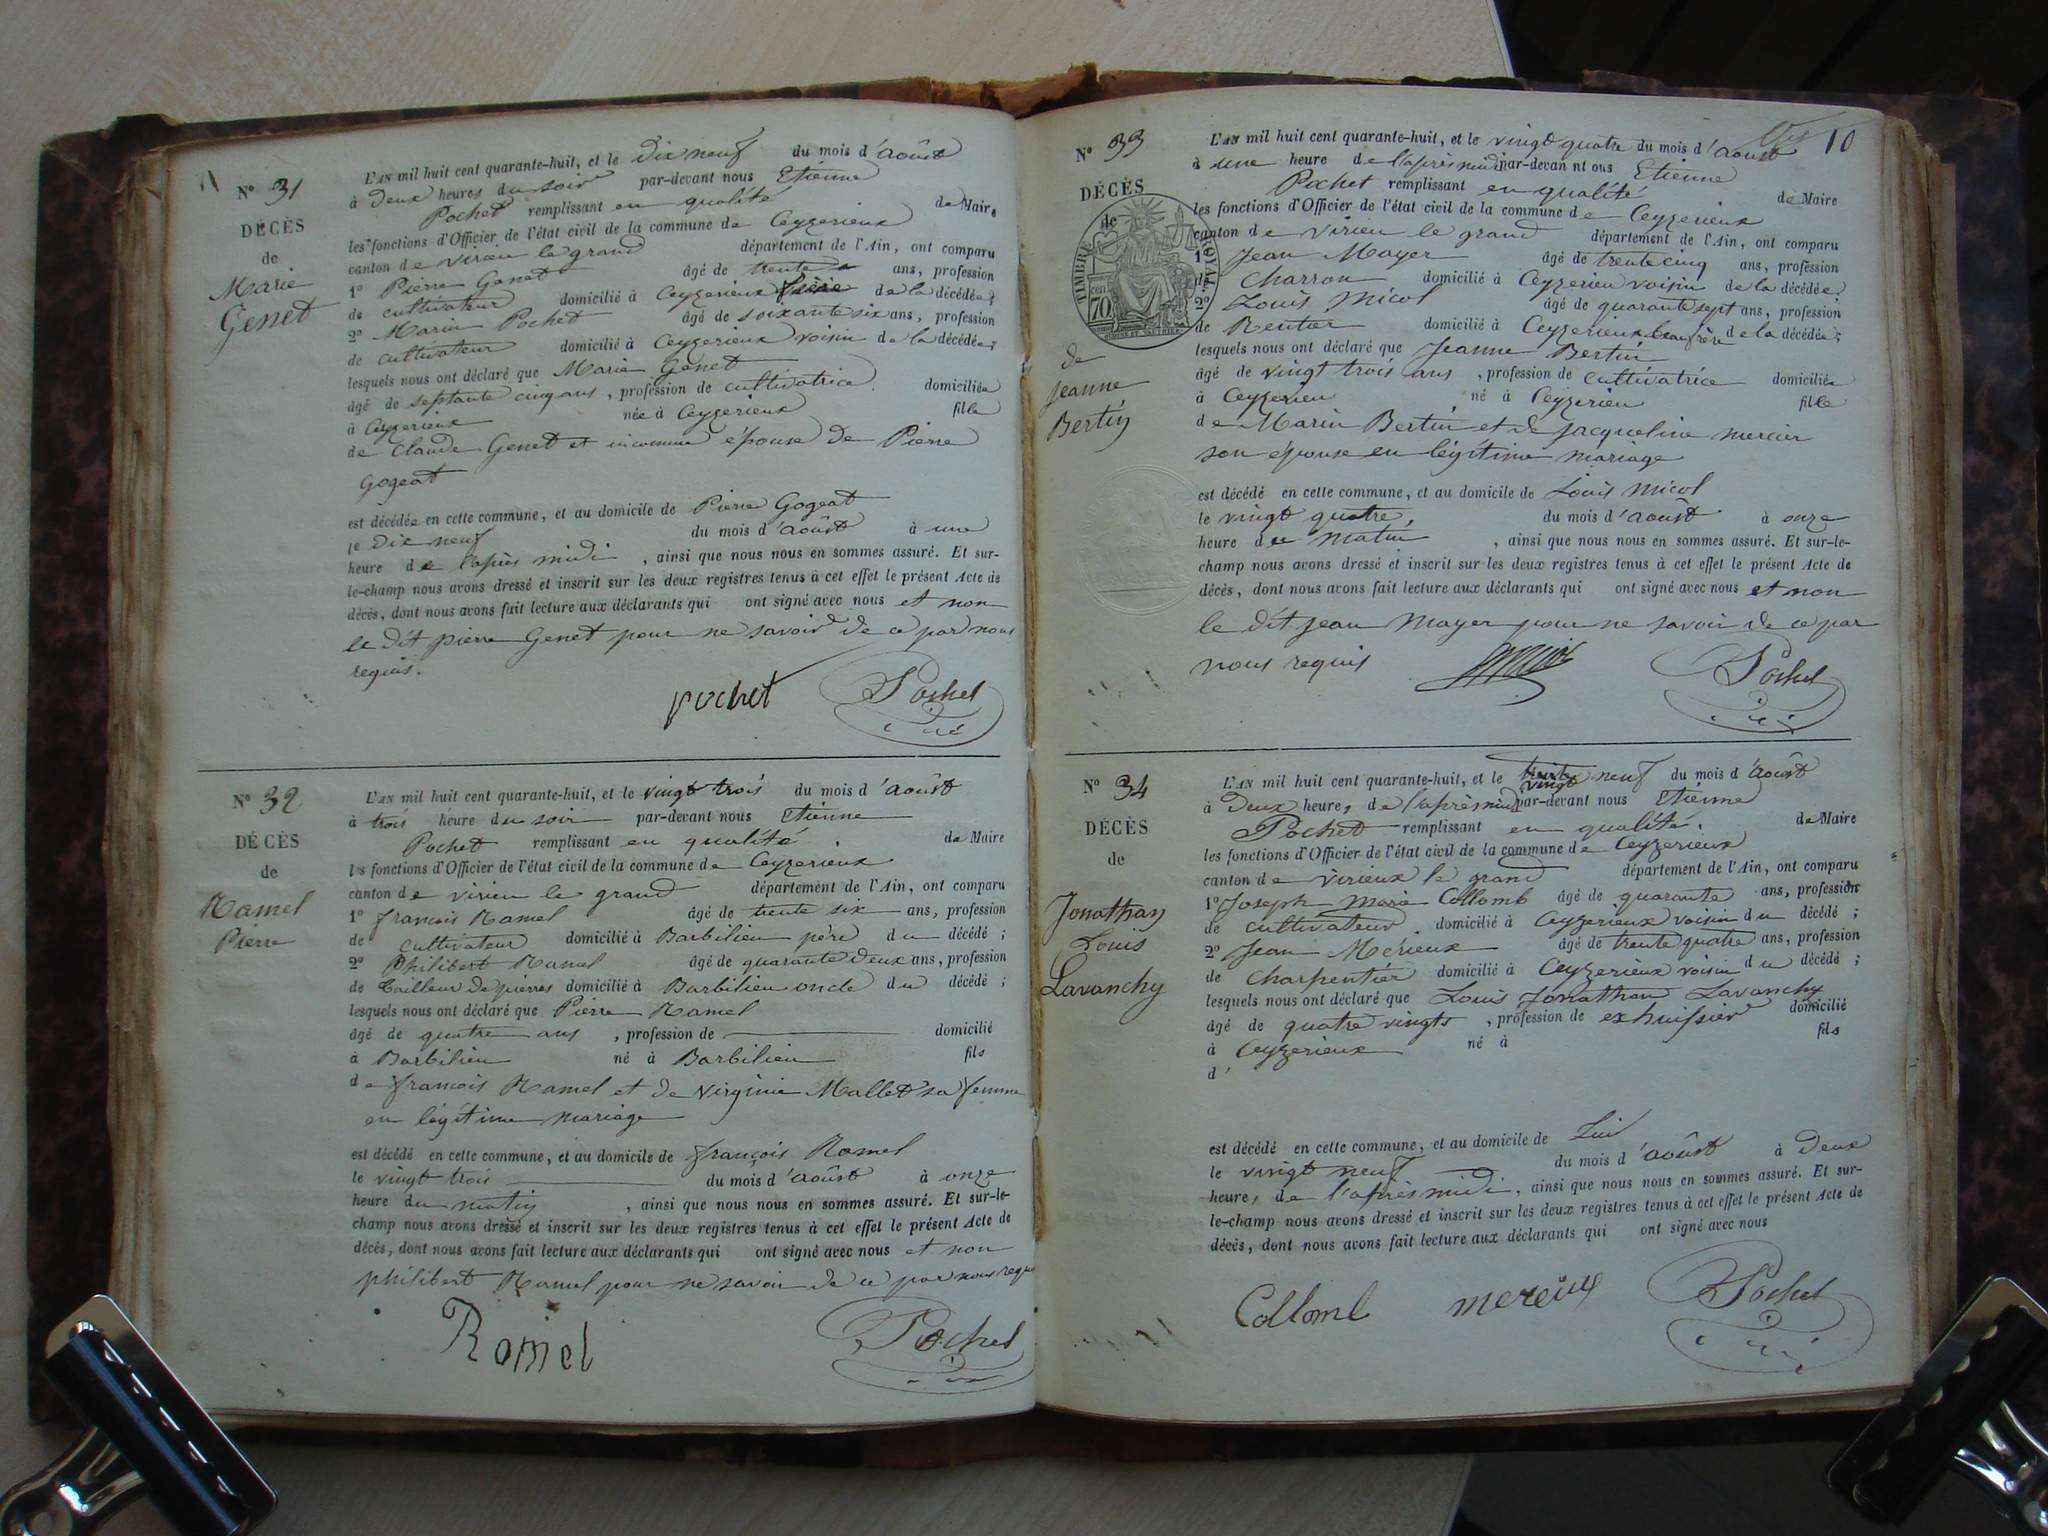 N° 31
DÉCÈS
de
Marie
Genet
L'AN mil huit cent quarante-huit, et le dix neuf du mois d'août
à Deux heures du soir par-devant nous Etienne
Pochet remplissant en qualité de Maire
les fonctions d'Officier de l'état civil de la commune de Ceyzerieux
canton de virieu le grand département de l'Ain, ont comparu
1° Pierre Genet âgé de trente ans, profession
de cultivateur domicilié à Ceyzerieux frère de la décédée;
2° Marin Pochet âgé de soixante six ans, profession
de cultivateur domicilié à Ceyzerieux voisin de la décédée;
lesquels nous ont déclaré que Marie Genet
âgé de septante cinq ans, profession de cultivatrice domiciliée
à Ceyzerieux née à Ceyzerieux fille
de Claude Genet et inconnue épouse de Pierre
Gogeat
est décédée en cette commune, et au domicile de Pierre Gogeat
le dix neuf du mois d'août à une
heure de l'après midi, ainsi que nous nous en sommes assuré. Et sur-
le-champ nous avons dressé et inscrit sur les deux registres tenus à cet effet le présent Acte de
décès, dont nous avons fait lecture aux déclarants qui ont signé avec nous et non
le dit pierre Genet pour ne savoir de ce par nous
requis.
pochet Pochet
N° 32
DÉCÈS
de
Ramel
Pierre
L'AN mil huit cent quarante-huit, et le vingt trois du mois d'août
à trois heure du soir par-devant nous Etienne
Pochet remplissant en qualité de Maire
les fonctions d'Officier de l'état civil de la commune de Ceyzerieux
canton de virieu le grand département de l'Ain, ont comparu
1° françois Ramel âgé de trente six ans, profession
de cultivateur domicilié à Barbilieu père du décédé;
2° Philibert Ramel âgé de quarante deux ans, profession
de tailleur de pierres domicilié à Barbilieu oncle du décédé;
lesquels nous ont déclaré que Pierre Ramel
âgé de quatre ans, profession de domicilié
à Barbilieu né à Barbilieu fils
de françois Ramel et de virginie Mallet sa femme
en légitime mariage
est décédé en cette commune, et au domicile de françois Ramel
le vingt trois du mois d'août à onze
heure du matin, ainsi que nous nous en sommes assuré. Et sur-le-
champ nous avons dressé et inscrit sur les deux registres tenus à cet effet le présent Acte de
décès, dont nous avons fait lecture aux déclarants qui ont signé avec nous et non
philibert Ramel pour ne savoir de ce par nous requ
Ramel Pochet
10
N° 33
DÉCÈS
de
TIMBRE ROYAL
70
de
Jeanne
Bertin
L'AN mil huit cent quarante-huit, et le vingt quatre du mois d'août
à une heure de l'après midi par-devant nous Etienne
Pochet remplissant en qualité de Maire
les fonctions d'Officier de l'état civil de la commune de Ceyzerieux
canton de virieu le grand département de l'Ain, ont comparu
1° Jean Mayer âgé de trente cinq ans, profession
de Charron domicilié à Ceyzerieu voisin de la décédée;
2° Louis Micol âgé de quarante sept ans, profession
de Rentier domicilié à Ceyzerieux beau frère de la décédée;
lesquels nous ont déclaré que Jeanne Bertin
âgé de vingt trois ans, profession de cultivatrice domiciliée
à Ceyzerieu né à Ceyzerieu fille
de Marin Bertin et de jacqueline mercier
son épouse en légitime mariage
est décédé en cette commune, et au domicile de Louis Micol
le vingt quatre, du mois d'août à onze
heure du matin, ainsi que nous nous en sommes assuré. Et sur-le-
champ nous avons dressé et inscrit sur les deux registres tenus à cet effet le présent Acte de
décès, dont nous avons fait lecture aux déclarants qui ont signé avec nous et non
le dit jean Mayer pour ne savoir de ce par
nous requis Pochet
N° 34
DÉCÈS
de
Jonathan
Louis
Lavanchy
L'AN mil huit cent quarante-huit, et le vingt neuf du mois d'août
à Deux heures, de l'après midi par-devant nous Etienne
Pochet remplissant en qualité. de Maire
les fonctions d'Officier de l'état civil de la commune de Ceyzerieux
canton de virieux le grand département de l'Ain, ont comparu
1° Joseph Marie Collomb âgé de quarante ans, profession
de cultivateur domicilié à Ceyzerieux voisin du décédé;
2° Jean Merieux âgé de trente quatre ans, profession
de Charpentier domicilié à Ceyzerieux voisin du décédé;
lesquels nous ont déclaré que Louis Jonathan Lavanchy
âgé de quatre vingts, profession de ex huissier domicilié
à Ceyzerieux né à fils
d'
est décédé en cette commune, et au domicile de Lui
le vingt neuf du mois d'août à Deux
heure, de l'après midi, ainsi que nous nous en sommes assuré. Et sur-
le-champ nous avons dressé et inscrit sur les deux registres tenus à cet effet le présent Acte de
décès, dont nous avons fait lecture aux déclarants qui ont signé avec nous
Collomb merieux Pochet